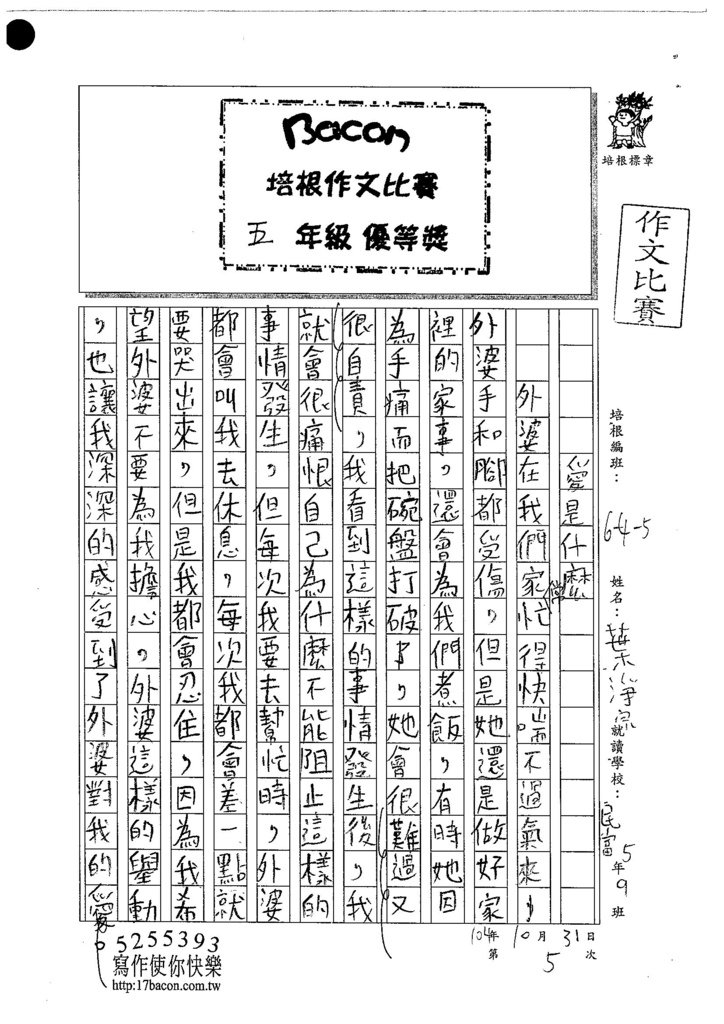 Bacon
培根作文比賽
五 年級 優等獎
培根標章
作文比賽
培根編班：64-5 姓名：葉淨 就讀學校：民富5年9班
104年10月31日
第5次
愛是什麼
外婆在我們家常忙得快喘不過氣來，
外婆手和腳都受傷，但是她還是做好家
裡的家事，還會為我們煮飯，有時她因
為手痛而把碗盤打破了，她會很難過又
很自責，我看到這樣的事情發生後，我
就會很痛恨自己為什麼不能阻止這樣的
事情發生，但每次我要去幫忙時，外婆
都會叫我去休息，每次我都會差一點就
要哭出來，但是我都會忍住，因為我希
望外婆不要為我擔心，外婆這樣的舉動
，也讓我深深的感受到了外婆對我的愛。
5255393
寫作使你快樂
http:17bacon.com.tw